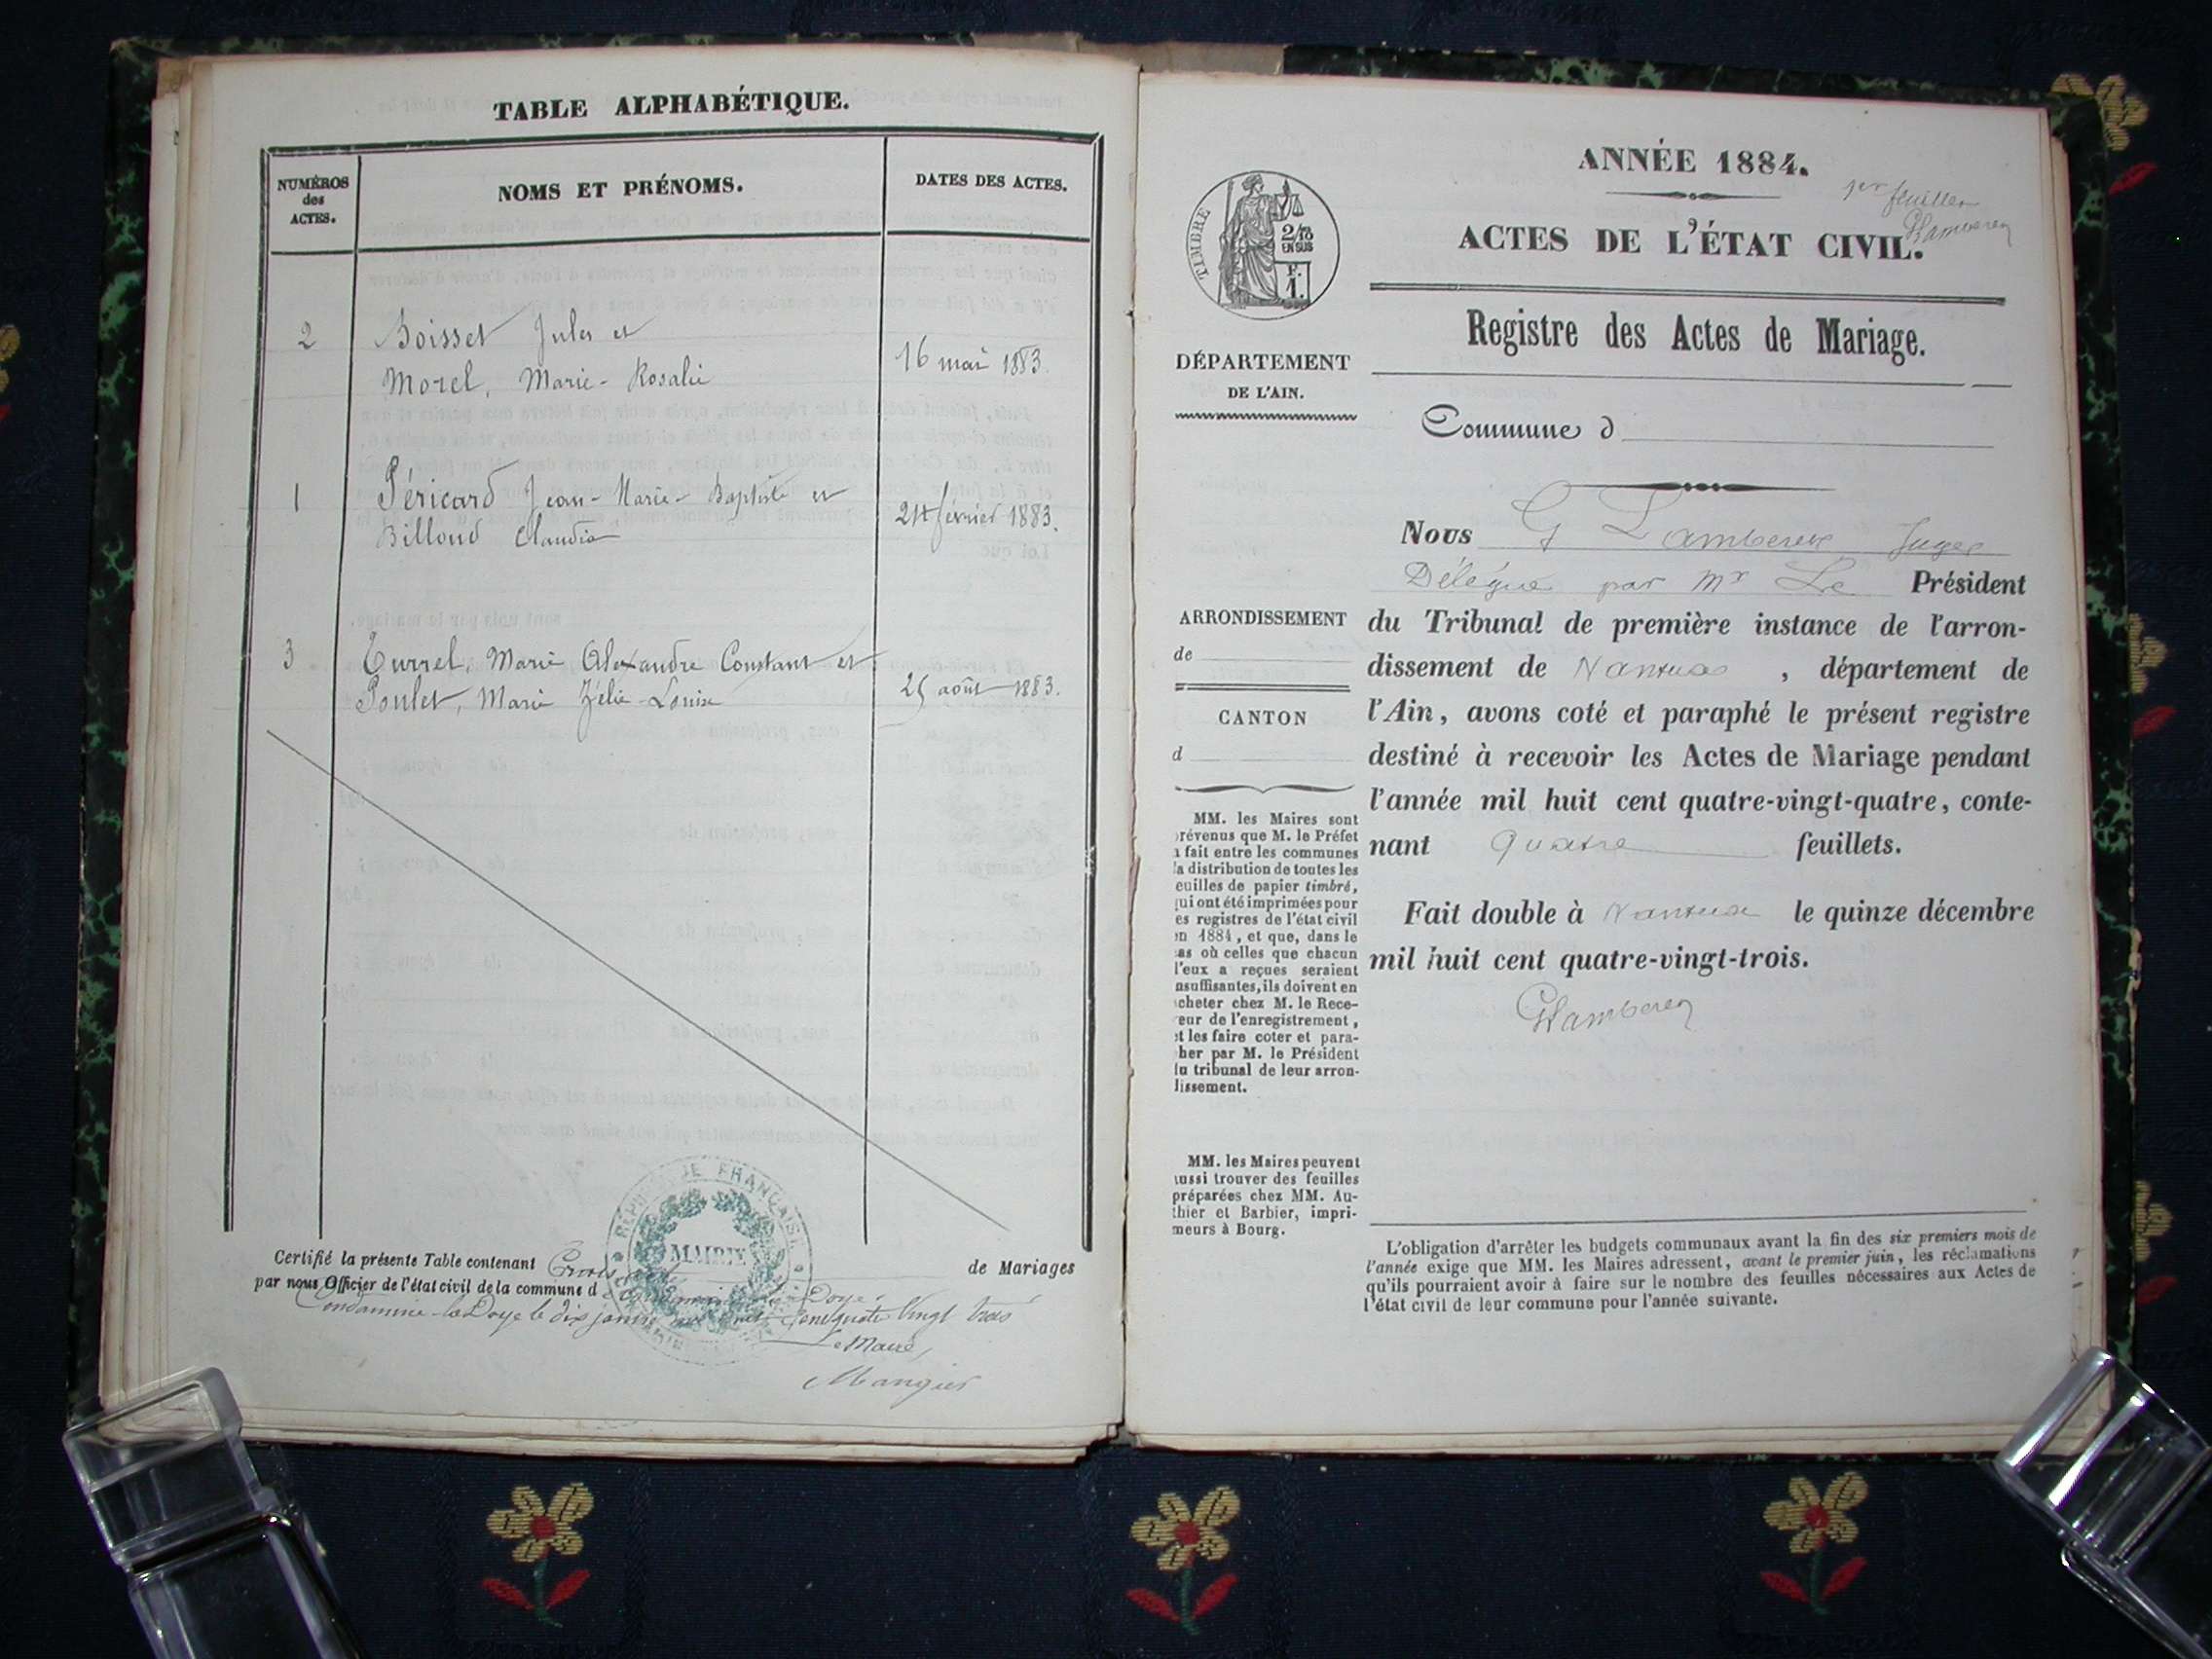 TABLE ALPHABÉTIQUE.
NUMÉROS
des
ACTES.
NOMS ET PRÉNOMS.
DATES DES ACTES.
2
Boisset Jules et
Morel, Marie-Rosalie
16 mai 1883.
1
Péricard Jean-Marie-Baptiste et
Billoud Claudia
24 février 1883.
3
Turrel, Marie Alexandre Constant et
Poulet, Marie Zélie-Louise
25 août 1883.
RÉPUBLIQUE FRANÇAISE
MAIRIE
Certifié la présente Table contenant Trois de Mariages
par nous Officier de l'état civil de la commune d Doye
Condamine-la Doye le dix janvier mil huit cent quatre vingt trois
Le Maire,
Mangier
ANNÉE 1884.
1er feuillet
ACTES DE L'ÉTAT CIVIL.
Registre des Actes de Mariage.
TIMBRE
2/10
EN SUS
F.
1.
DÉPARTEMENT
DE L'AIN.
Commune d
Nous G Juge
Délégué par Mr Le Président
du Tribunal de première instance de l'arron-
dissement de Nantua, département de
l'Ain, avons coté et paraphé le présent registre
destiné à recevoir les Actes de Mariage pendant
l'année mil huit cent quatre-vingt-quatre, conte-
nant Quatre feuillets.
Fait double à Nantua le quinze décembre
mil huit cent quatre-vingt-trois.
ARRONDISSEMENT
de
CANTON
d
MM. les Maires sont
prévenus que M. le Préfet
a fait entre les communes
la distribution de toutes les
feuilles de papier timbré,
qui ont été imprimées pour
les registres de l'état civil
en 1884, et que, dans le
cas où celles que chacun
d'eux a reçues seraient
insuffisantes, ils doivent en
acheter chez M. le Rece-
veur de l'enregistrement,
et les faire coter et para-
pher par M. le Président
du tribunal de leur arron-
dissement.
MM. les Maires peuvent
aussi trouver des feuilles
préparées chez MM. Au-
thier et Barbier, impri-
meurs à Bourg.
L'obligation d'arrêter les budgets communaux avant la fin des six premiers mois de
l'année exige que MM. les Maires adressent, avant le premier juin, les réclamations
qu'ils pourraient avoir à faire sur le nombre des feuilles nécessaires aux Actes de
l'état civil de leur commune pour l'année suivante.